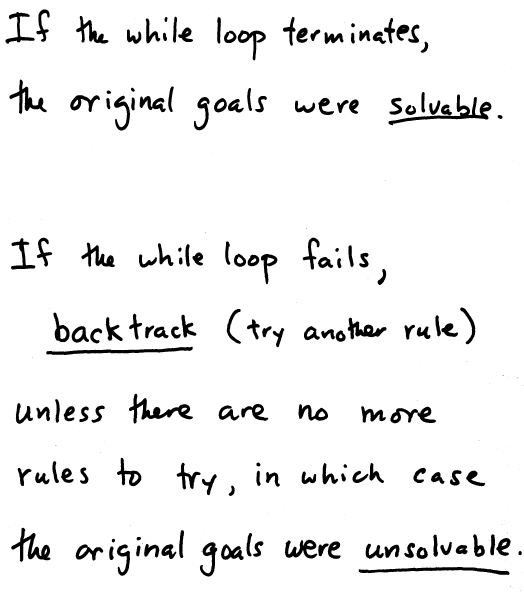 If the while loop terminates,
the original goals were solvable.
If the while loop fails,
backtrack (try another rule)
unless there are no more
rules to try, in which case
the original goals were unsolvable.